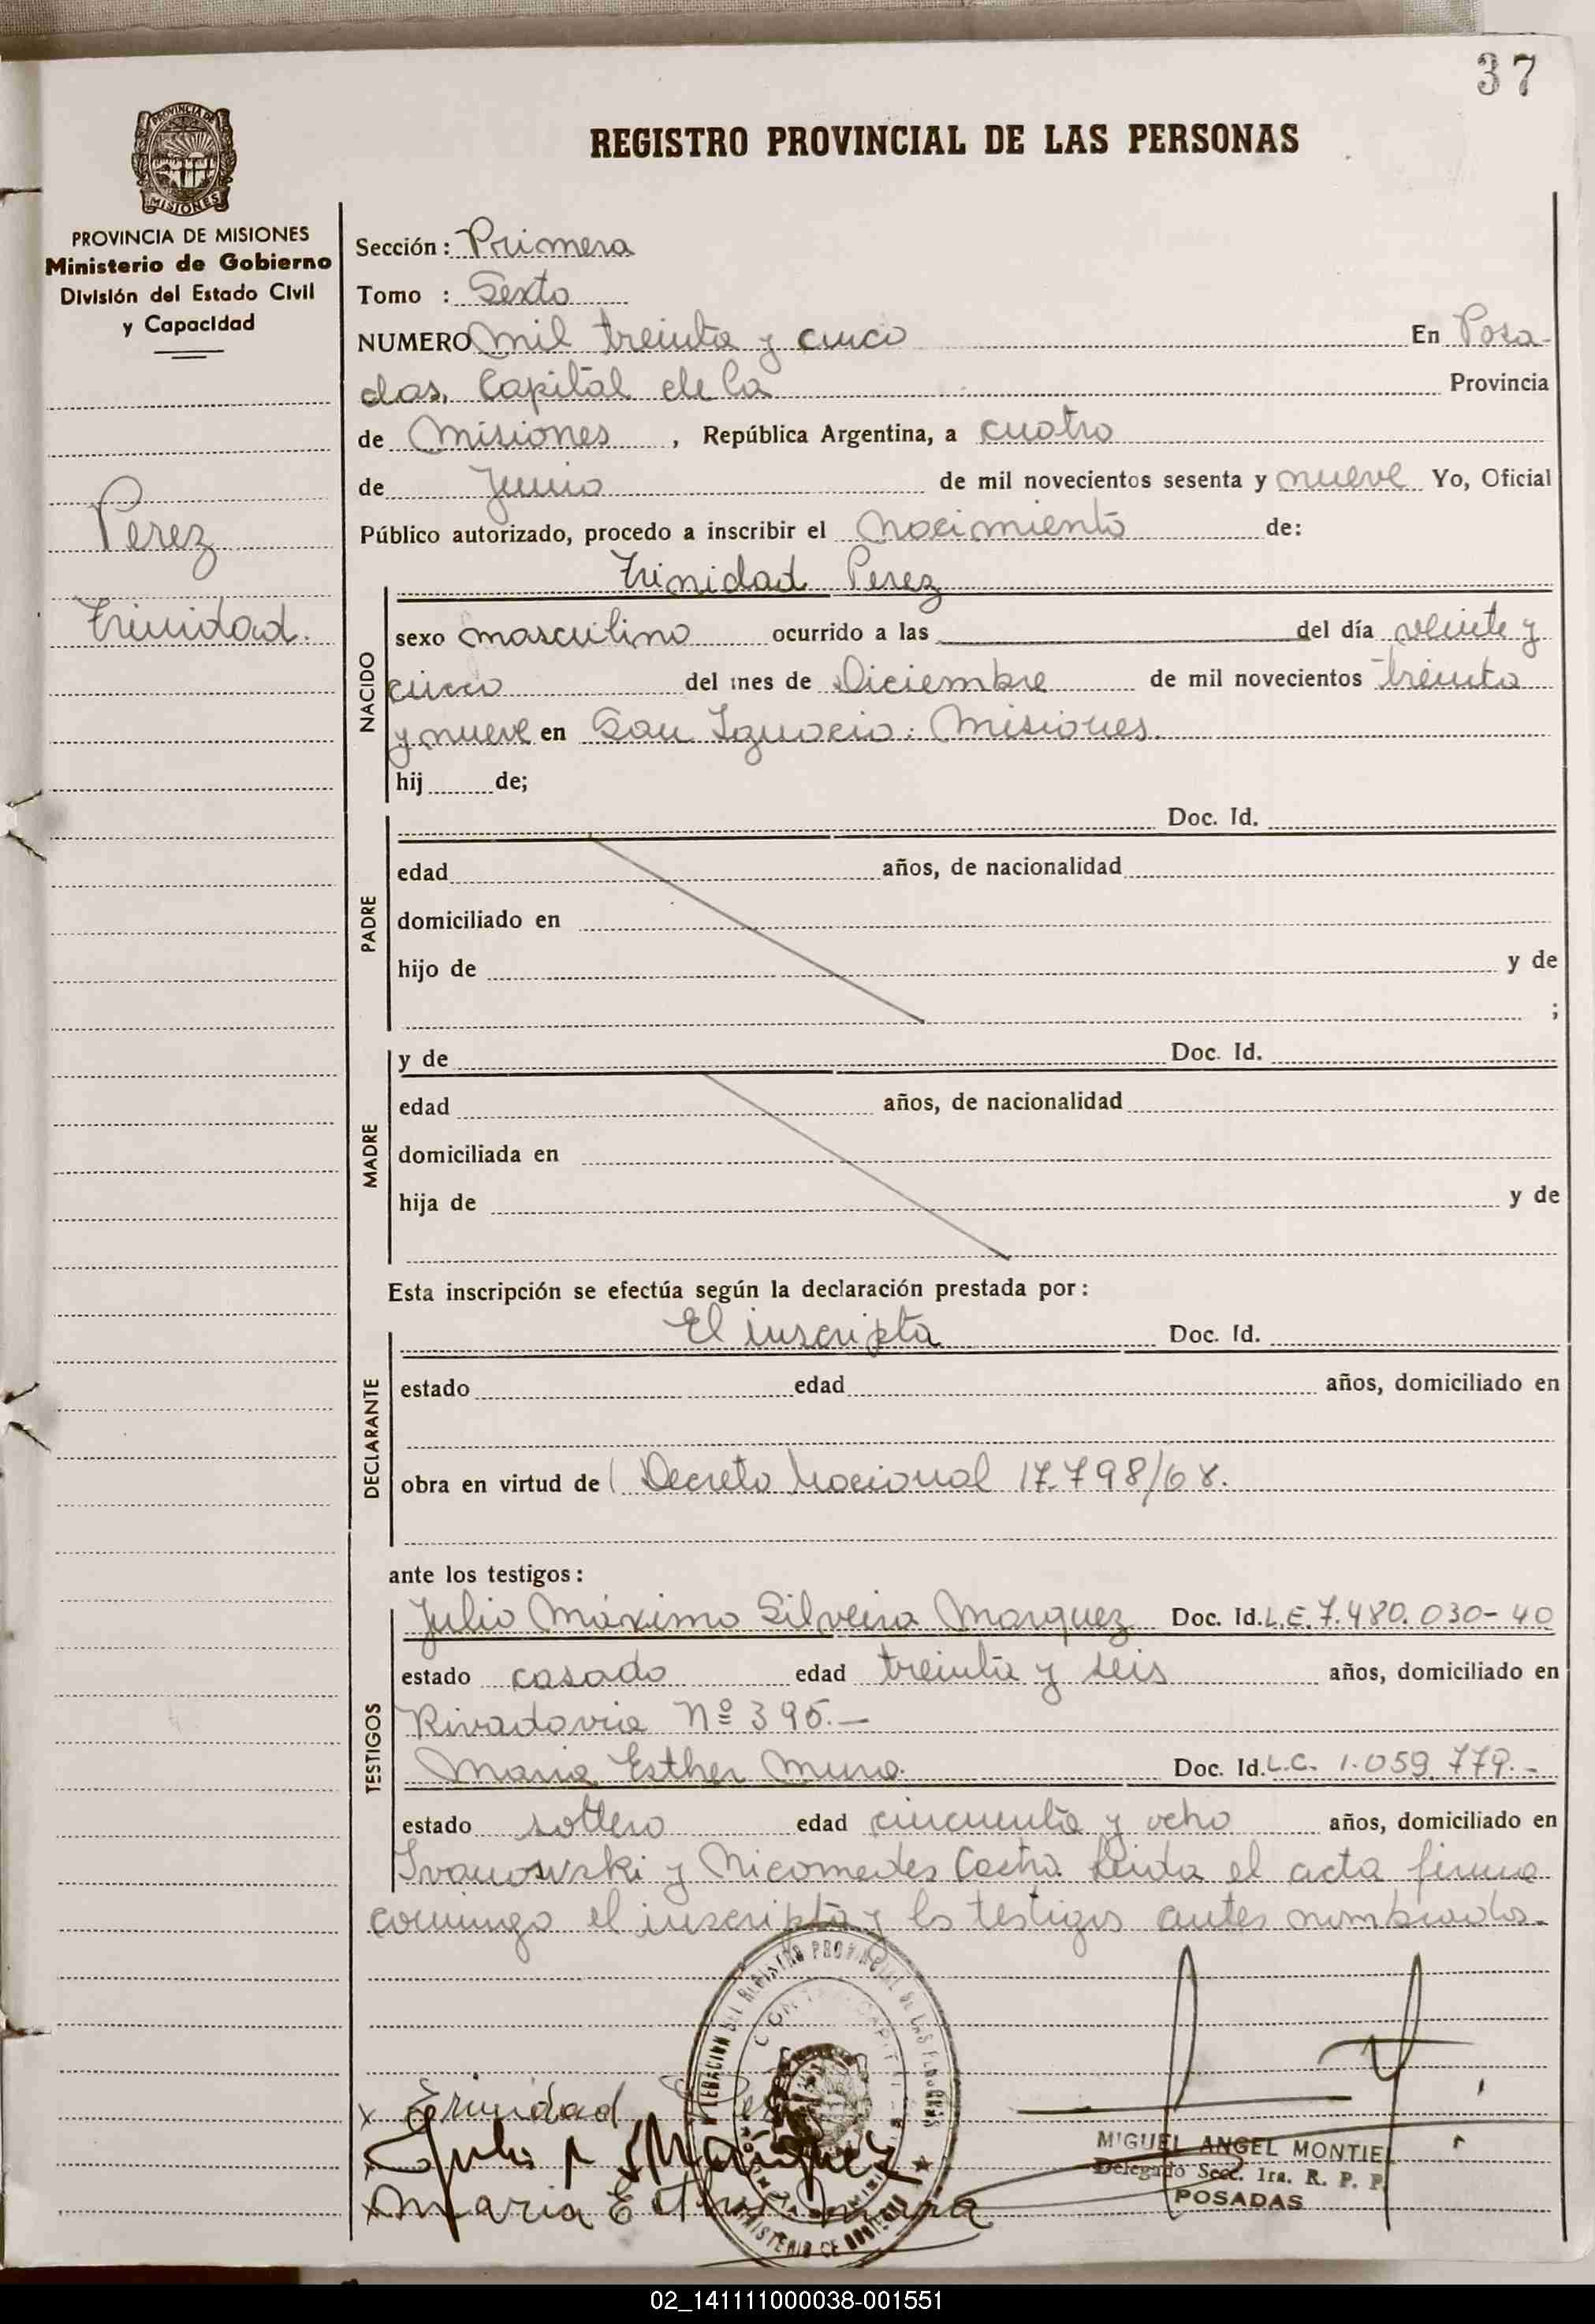 37
PROVINCIA DE
MISIONES
REGISTRO PROVINCIAL DE LAS PERSONAS
PROVINCIA DE MISIONES
Ministerio de Gobierno
División del Estado Civil
y Capacidad
Perez
Trinidad.
Sección: Primera
Tomo : Sexto
NUMERO mil treinta y cinco En Posa-
das, Capital de la Provincia
de Misiones, República Argentina, a cuatro
de Junio de mil novecientos sesenta y nueve Yo, Oficial
Público autorizado, procedo a inscribir el Nacimiento de:
Trinidad Perez
NACIDO
sexo masculino ocurrido a las del día veinte y
cinco del mes de Diciembre de mil novecientos treinta
y nueve en San Ignacio. Misiones.
hij de;
PADRE
Doc. Id.
edad años, de nacionalidad
domiciliado en
hijo de y de
;
MADRE
y de Doc. Id.
edad años, de nacionalidad
domiciliada en
hija de y de
Esta inscripción se efectúa según la declaración prestada por:
DECLARANTE
El inscripto Doc. Id.
estado edad años, domiciliado en
obra en virtud de Decreto Nacional 17.798/68.
ante los testigos:
TESTIGOS
Julio Máximo Silveira Marquez Doc. Id. L.E. 7.480.030-40
estado casado edad treinta y seis años, domiciliado en
Rivadavia Nº 395.—
Maria Esther Mura. Doc. Id. L.C. 1.059.779.-
estado soltero edad cincuenta y ocho años, domiciliado en
Ivanowski y Nicomedes Castro. Leida el acta firma
conmigo el inscripto y los testigos antes nombrados.
DELEGACION DEL REGISTRO PROVINCIAL DE LAS PERSONAS
MINISTERIO DE GOBIERNO
x Trinidad
Julio Marquez
x Maria Esther Mura
MIGUEL ANGEL MONTIEL
Delegado Secc. 1ra. R. P. P.
POSADAS
02_141111000038-001551